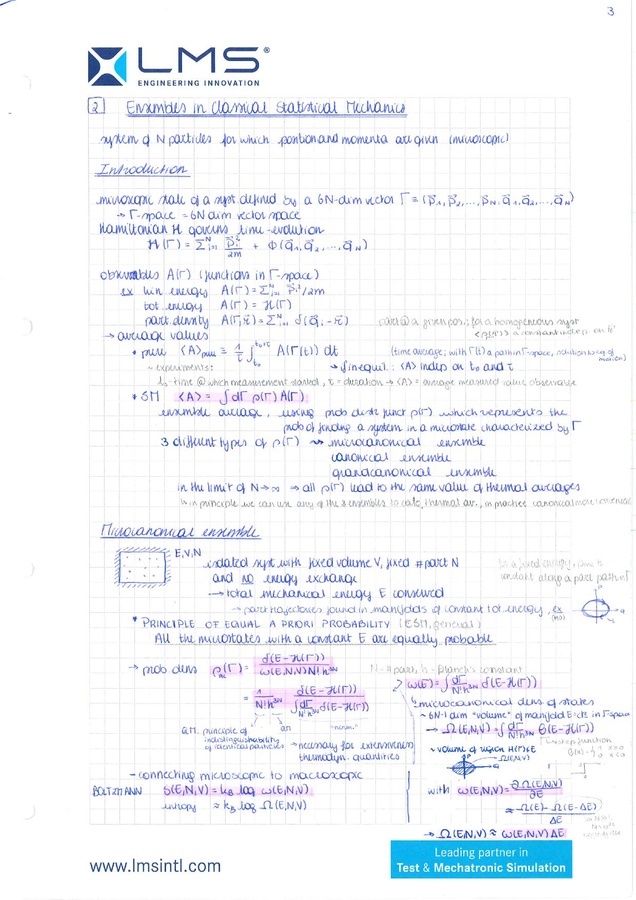 3
LMS®
ENGINEERING INNOVATION
2 Ensembles in Classical Statistical Mechanics
system of N particles for which position and momenta are given (microscopic)
Introduction
microscopic state of a syst defined by a 6N-dim vector Γ = (p⃗₁, p⃗₂, ..., p⃗N, q⃗₁, q⃗₂, ..., q⃗N)
→ Γ-space = 6N dim vector space
Hamiltonian H governs time-evolution
H(Γ) = Σᵢ₌₁ᴺ p⃗ᵢ²/2m + Φ(q⃗₁, q⃗₂, ..., q⃗N)
observables A(Γ) (functions in Γ-space)
ex kin energy A(Γ) = Σᵢ₌₁ᴺ p⃗ᵢ²/2m
tot energy A(Γ) = H(Γ)
part density A(Γ, r⃗) = Σᵢ₌₁ᴺ δ(q⃗ᵢ - r⃗) part @ a given pos.; for a homogeneous syst
→ average values
(time average; with Γ(t) a path in Γ-space, solution to eq of motion)
~ experiments: → if in equil.: <A> indep on t₀ and τ
t₀ = time @ which measurement started, τ = duration → <A> = average measured value observable
* SM <A> = ∫dΓ ρ(Γ) A(Γ)
ensemble average, using prob distr funct ρ(Γ) which represents the
prob of finding a system in a microstate characterized by Γ
3 different types of ρ(Γ) ⇝ microcanonical ensemble
canonical ensemble
grandcanonical ensemble
in the limit of N→∞ → all ρ(Γ) lead to the same value of thermal averages
in principle we can use any of the 3 ensembles to calc. thermal av., in practice canonical more convenient
Microcanonical ensemble
E,V,N
isolated syst with fixed volume V, fixed # part N
and no energy exchange
→ total mechanical energy E conserved
→ part trajectories found in manifolds of constant tot energy, ex
* PRINCIPLE OF EQUAL A PRIORI PROBABILITY (ESM, general)
All the microstates with a constant E are equally probable
→ prob dens ρmc(Γ) = δ(E-H(Γ)) / ω(E,N,V) N! h³ᴺ
N = # part, h = Planck's constant
ω(E) = ∫ dΓ/N!h³ᴺ δ(E-H(Γ))
= 1/N!h³ᴺ δ(E-H(Γ)) / ∫ dΓ/N!h³ᴺ δ(E-H(Γ))
microcanonical dens of states
~ 6N-1 dim "volume" of manifold E=cte in Γ-space
QM. principle of indistinguishability of identical particles
QM
"norm."
→ necessary for extensiveness thermodyn. quantities
→ Ω(E,N,V) = ∫ dΓ/N!h³ᴺ Θ(E-H(Γ))
step function
~ volume of region H(Γ)≤E
Ω(E,N,V)
– connecting microscopic to macroscopic
BOLTZMANN S(E,N,V) = k_B log ω(E,N,V)
entropy ≈ k_B log Ω(E,N,V)
with ω(E,N,V) = ∂Ω(E,N,V)/∂E
≈ Ω(E) - Ω(E-ΔE) / ΔE
→ Ω(E,N,V) ≈ ω(E,N,V) ΔE
www.lmsintl.com
Leading partner in
Test & Mechatronic Simulation